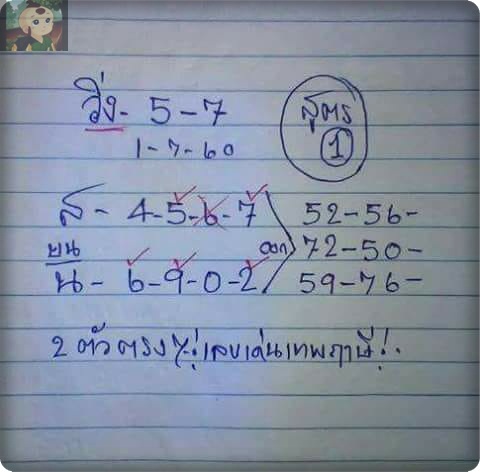 วิ่ง- 5-7
สูตร
1
1-7-60
ส - 4-5-6-7
บน
น - 6-9-0-2
ออก
52-56-
72-50-
59-76-
2 ตัวตรงๆ! เลขเด่นเทพฤาษี!.